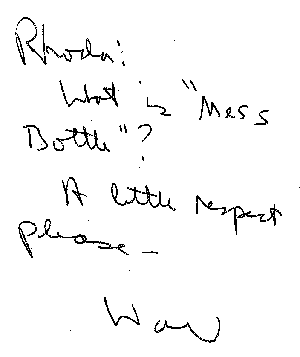 Rhoda:
What is "Mess
Bottle"?
A little respect
please —